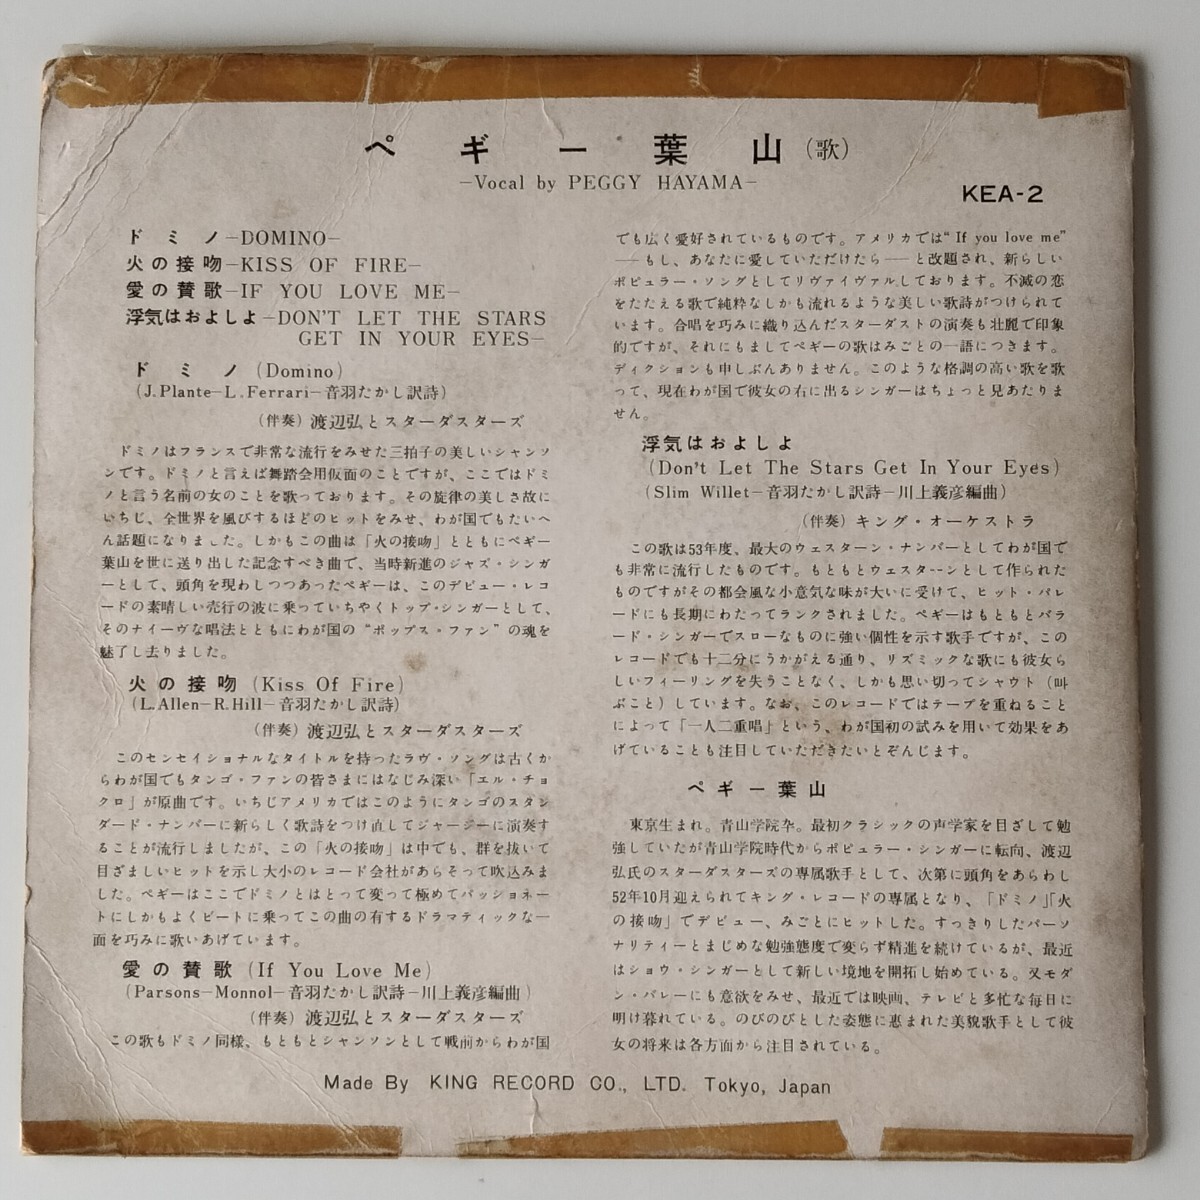 ペギー葉山(歌)
-Vocal by PEGGY HAYAMA-
KEA-2
ドミノ-DOMINO-
火の接吻-KISS OF FIRE-
愛の賛歌-IF YOU LOVE ME-
浮気はおよしよ-DON'T LET THE STARS
GET IN YOUR EYES-
ドミノ(Domino)
(J.Plante-L.Ferrari-音羽たかし訳詩)
(伴奏)渡辺弘とスターダスターズ
ドミノはフランスで非常な流行をみせた三拍子の美しいシャンソ
ンです。ドミノと言えば舞踏会用仮面のことですが、ここではドミ
ノと言う名前の女のことを歌っております。その旋律の美しさ故に
いちじ、全世界を風びするほどのヒットをみせ、わが国でもたいへ
ん話題になりました。しかもこの曲は「火の接吻」とともにペギー
葉山を世に送り出した記念すべき曲で、当時新進のジャズ・シンガ
ーとして、頭角を現わしつつあったペギーは、このデビュー・レコ
ードの素晴しい売行の波に乗っていちやくトップ・シンガーとして、
そのナイーヴな唱法とともにわが国の“ポップス・ファン”の魂を
魅了し去りました。
火の接吻(Kiss Of Fire)
(L.Allen-R.Hill-音羽たかし訳詩)
(伴奏)渡辺弘とスターダスターズ
このセンセイショナルなタイトルを持ったラヴ・ソングは古くか
らわが国でもタンゴ・ファンの皆さまにはなじみ深い「エル・チョ
クロ」が原曲です。いちじアメリカではこのようにタンゴのスタン
ダード・ナンバーに新らしく歌詩をつけ直してジャージーに演奏す
ることが流行しましたが、この「火の接吻」は中でも、群を抜いて
目ざましいヒットを示し大小のレコード会社があらそって吹込みま
した。ペギーはここでドミノとはとって変って極めてパッショネー
トにしかもよくビートに乗ってこの曲の有するドラマティックな一
面を巧みに歌いあげています。
愛の賛歌(If You Love Me)
(Parsons-Monnol-音羽たかし訳詩-川上義彦編曲)
(伴奏)渡辺弘とスターダスターズ
この歌もドミノ同様、もともとシャンソンとして戦前からわが国
でも広く愛好されているものです。アメリカでは“If you love me”
――もし、あなたに愛していただけたら――と改題され、新らしい
ポピュラー・ソングとしてリヴァイヴァルしております。不滅の恋
をたたえる歌で純粋なしかも流れるような美しい歌詩がつけられて
います。合唱を巧みに織り込んだスターダストの演奏も壮麗で印象
的ですが、それにもましてペギーの歌はみごとの一語につきます。
ディクションも申しぶんありません。このような格調の高い歌を歌
って、現在わが国で彼女の右に出るシンガーはちょっと見あたりま
せん。
浮気はおよしよ
(Don't Let The Stars Get In Your Eyes)
(Slim Willet-音羽たかし訳詩-川上義彦編曲)
(伴奏)キング・オーケストラ
この歌は53年度、最大のウェスターン・ナンバーとしてわが国で
も非常に流行したものです。もともとウェスターンとして作られた
ものですがその都会風な小意気な味が大いに受けて、ヒット・パレ
ードにも長期にわたってランクされました。ペギーはもともとバラ
ード・シンガーでスローなものに強い個性を示す歌手ですが、この
レコードでも十二分にうかがえる通り、リズミックな歌にも彼女ら
しいフィーリングを失うことなく、しかも思い切ってシャウト(叫
ぶこと)しています。なお、このレコードではテープを重ねること
によって「一人二重唱」という、わが国初の試みを用いて効果をあ
げていることも注目していただきたいとぞんじます。
ペギー葉山
東京生まれ。青山学院卒。最初クラシックの声学家を目ざして勉
強していたが青山学院時代からポピュラー・シンガーに転向、渡辺
弘氏のスターダスターズの専属歌手として、次第に頭角をあらわし
52年10月迎えられてキング・レコードの専属となり、「ドミノ」「火
の接吻」でデビュー、みごとにヒットした。すっきりしたパーソ
ナリティーとまじめな勉強態度で変らず精進を続けているが、最近
はショウ・シンガーとして新しい境地を開拓し始めている。又モダ
ン・バレーにも意欲をみせ、最近では映画、テレビと多忙な毎日に
明け暮れている。のびのびとした姿態に恵まれた美貌歌手として彼
女の将来は各方面から注目されている。
Made By KING RECORD CO., LTD. Tokyo, Japan